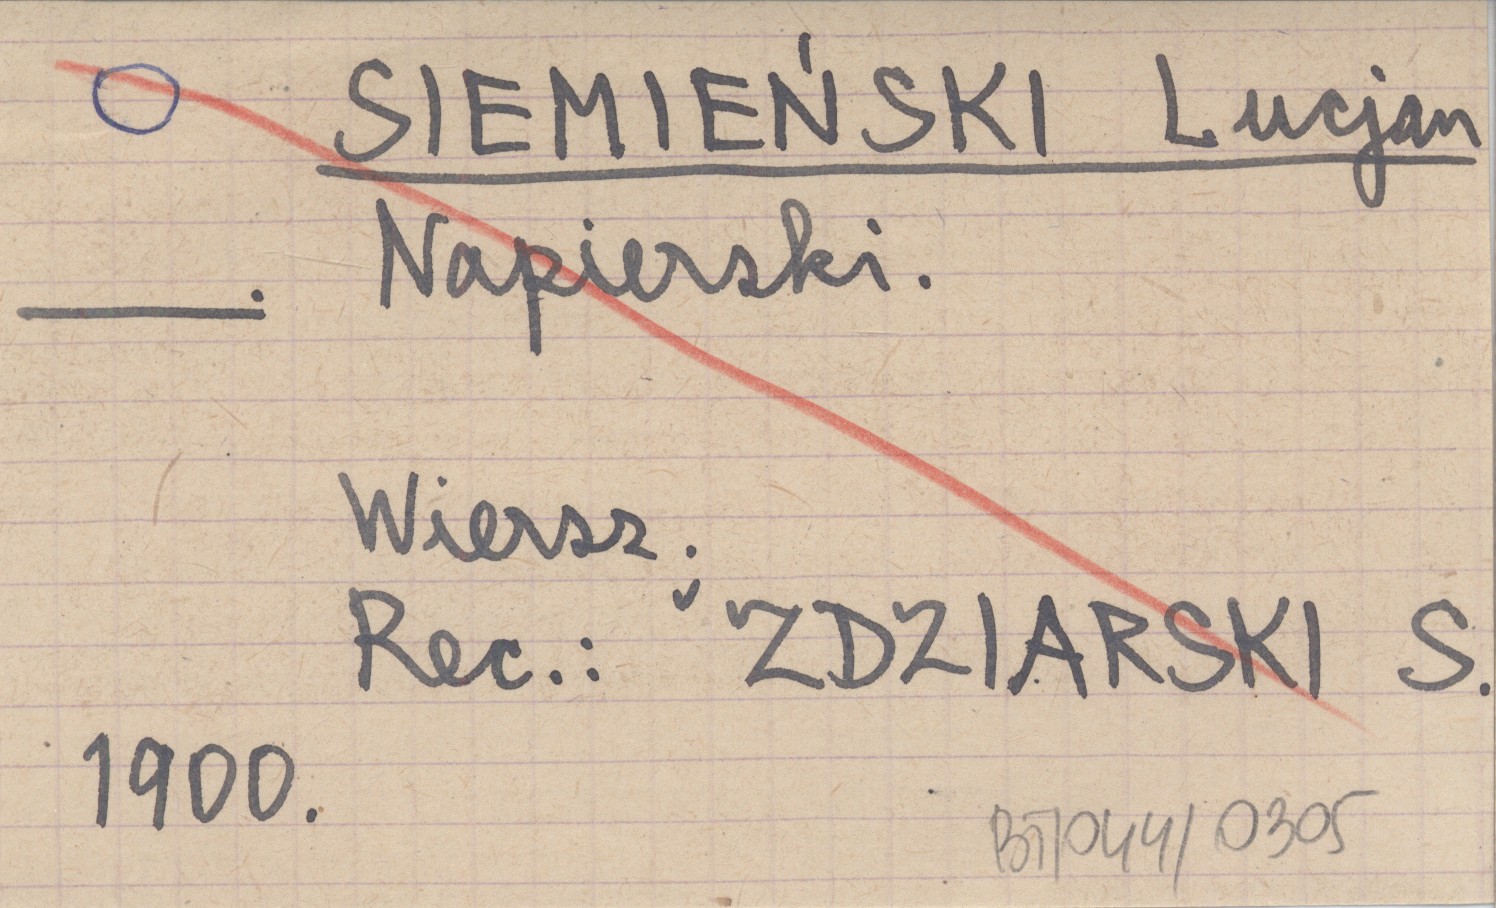 SIEMIEŃSKI Lucjan
Napierski.
Wiersz.
Rec.: ZDZIARSKI S.
1900.
BJ/044/0305